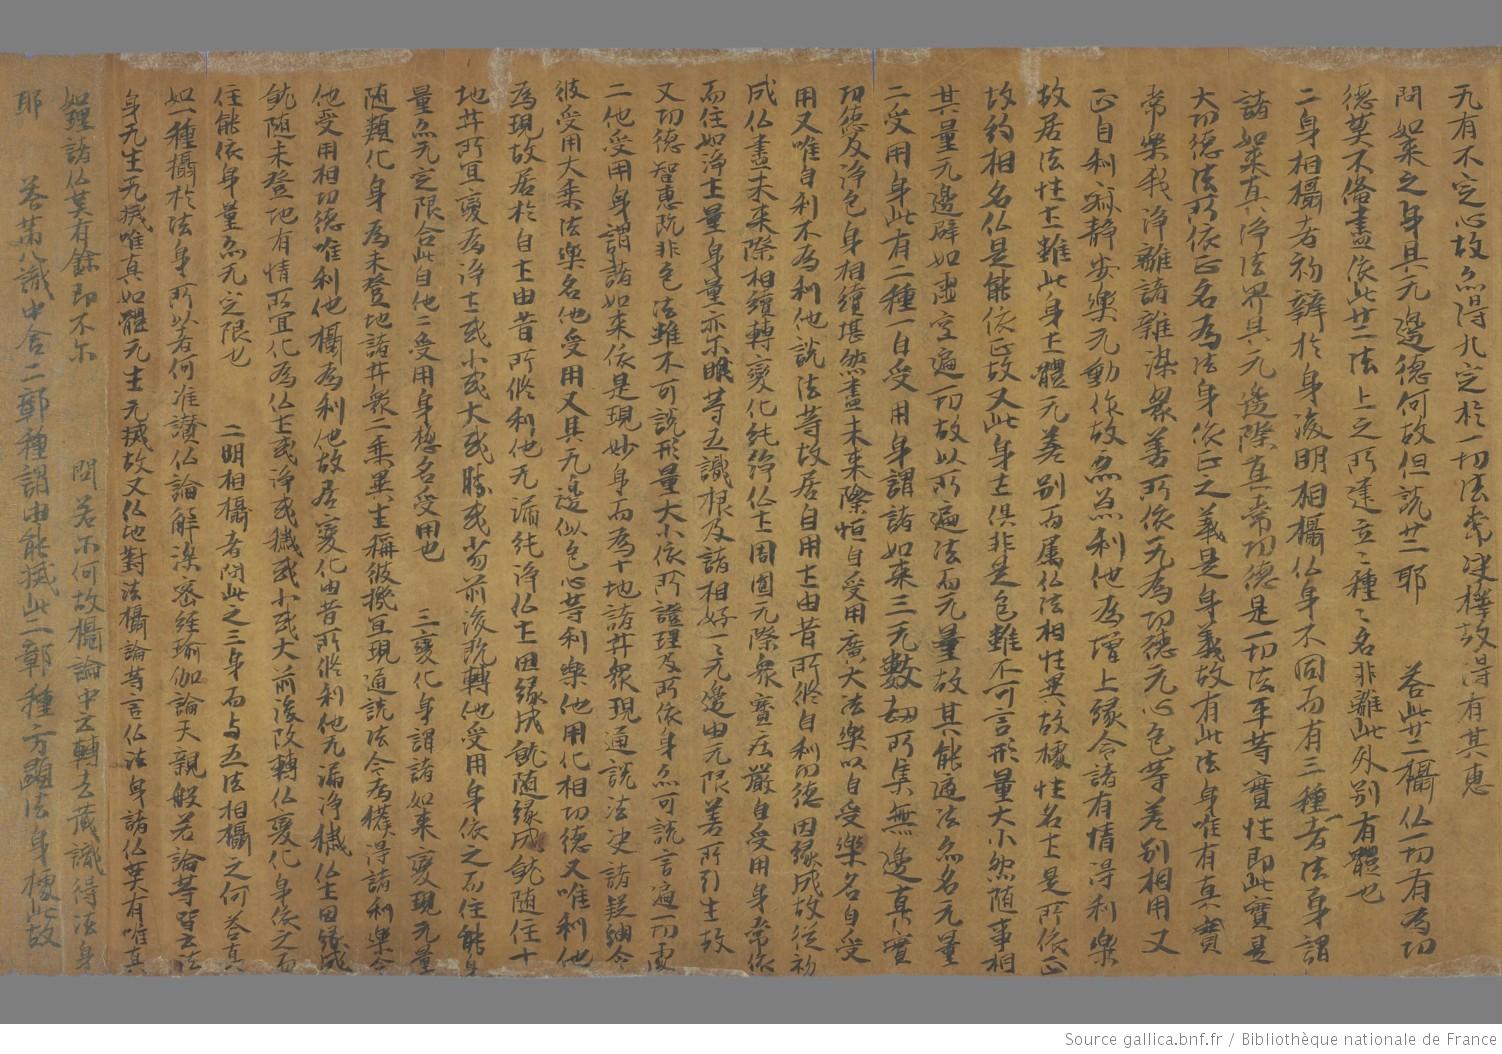 无有不定心故亦得九定於一切法常決擇故得有其惠
問如來之身具无邊德何故但說廿一耶 答此廿二攝仏一切有為功
德莫不備盡依此廿二法上之所建立二種之名非離此外別有體也
二身相攝者初辯於身後明相攝仏身不同而有三種者法身謂
諸如來真淨法界具无邊際真常功德是一切法平等實性即此實是
大功德法所依止名為法身依止之義是身義故有此法身唯有真實
常樂我淨離諸雜染眾善所依无為功德无心色等差別相用又
正自利寂靜安樂无動作故亦兼利他為增上緣令諸有情得利樂
故居法性土雖此身土體无差別而屬仏法相性異故據性名土是所依止
故約相名仏是能依止故又此身土俱非是色雖不可言形量大小然隨事相
其量无邊辟如虛空遍一切故以所遍法而无量故其能遍法亦名无量
二受用身此有二種一自受用身謂諸如來三无數劫所集無邊真實
功德及淨色身相續堪然盡未來際恒自受用廣大法樂以自受樂名自受
用又唯自利不為利他說法等故居自用土由昔所修自利功德因緣成故從初
成仏盡未來際相續轉變化純淨仏土周圓无際眾寶莊嚴自受用身常依
而住如淨土量身量亦尔眼等五識根及諸相好一一无邊由无限善所引生故
又功德智惠既非色法雖不可說形量大小依所證理及所依身亦可說言遍一切處
二他受用身謂諸如來依是現妙身而為十地諸菩眾現通說法決諸疑網令
彼受用大乘法樂名他受用又具无邊似色心等利樂他用化相功德又唯利他
為現故居於自土由昔所修利他无漏純淨仏土因緣成就隨緣成就隨住十
地菩所宜變為淨土或小或大或勝或劣前後改轉他受用身依之而住能身
量亦无定限合此自他二受用身總名受用也 三變化身謂諸如來變現无量
隨類化身為未登地諸菩眾二乘異生稱彼機宜現通說法令為機得諸利樂令
他受用相功德唯利他攝為利他故居變化由昔所修利他无漏淨穢仏土因緣成
就隨未登地有情所宜化為仏土或淨或穢或小或大前後改轉仏變化身依之而
住能依身量亦无定限也 二明相攝者問此之三身而与五法相攝之何答真
如一種攝於法身所以者何准讚仏論解深密經瑜伽論天親般若論等皆云法
身无生无滅唯真如體无生无滅故又仏地對法攝論等言仏法身諸仏共有唯真
如理諸仏共有餘即不尔 問若尔何故攝論中云轉去藏識得法身
耶 答第八識中含二鄣種謂由能滅此二鄣種方顯法身據此故